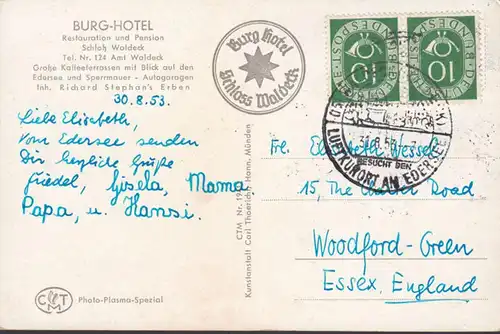 BURG-HOTEL
Restauration und Pension
Schloß Waldeck
Tel. Nr. 124 Amt Waldeck
Große Kaffeeterrassen mit Blick auf den
Edersee und Sperrmauer - Autogaragen
Inh. Richard Stephan's Erben
30.8.53.
Liebe Elisabeth,
Vom Edersee senden
Dir herzliche Grüße
Friedel, Gisela, Mama
Papa, u. Hansi.
CMT
Photo-Plasma-Spezial
CTM Nr.
Kunstanstalt Carl Thoericht Hann. Münden
Burg Hotel
Schloss Waldeck
DEUTSCHE BUNDESPOST
10
10
BESUCHT DEN
LUFTKURORT AM EDERSEE
Fr. Elisabeth Wessel
15, The Road
Woodford-Green
Essex, England